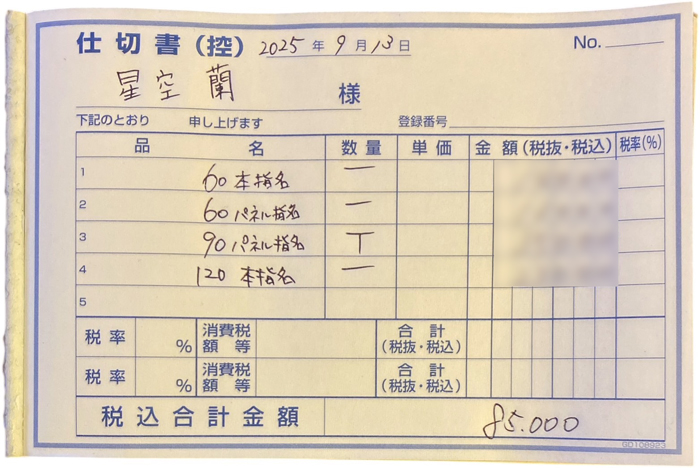 仕切書(控) 2025年9月13日 No.
星空蘭 様
下記のとおり 申し上げます 登録番号
品名 数量 単価 金額(税抜・税込) 税率(%)
1 60 本指名 一
2 60 パネル指名 一
3 90 パネル指名 丅
4 120 本指名 一
5
税率 % 消費税額等 合計(税抜・税込)
税率 % 消費税額等 合計(税抜・税込)
税込合計金額 85.000